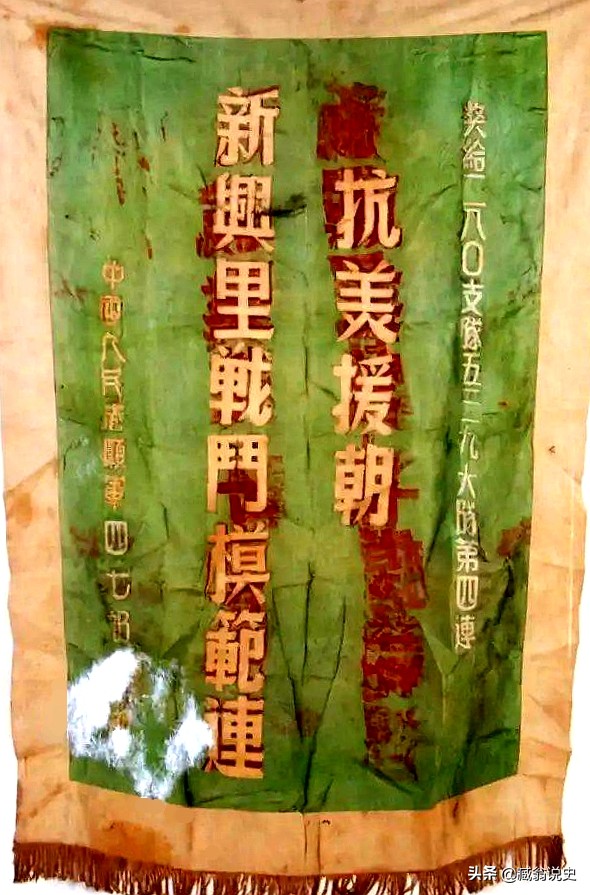 奖給二八〇支隊五三九大隊第四連
抗美援朝
新興里戦鬥模範連
中國人民志願軍四七部
头条 @藏翁说史